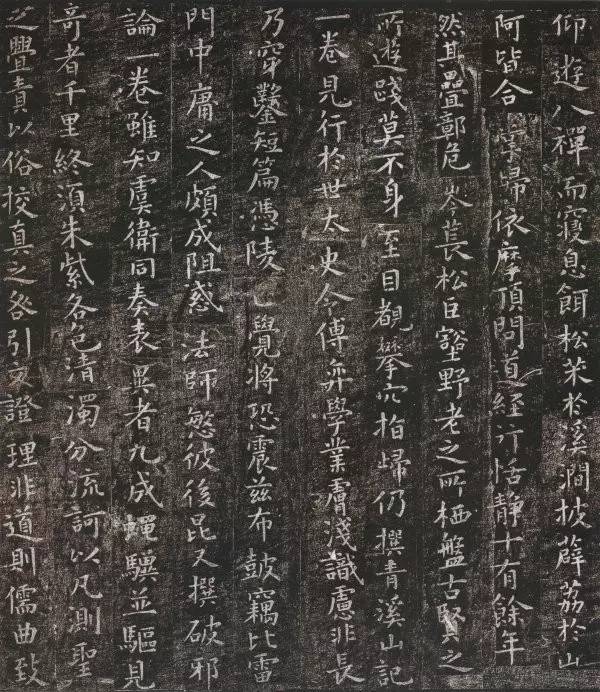 仰遊八禪而寢息餌松朮於溪澗披薜荔於山
阿皆合掌歸依摩頂問道經行恬靜十有餘年
然其疊鄣危岑萇松巨壑野老之所栖盤古賢之
所遊踐莫不身至目覩攀穴指歸仍撰青溪山記
一卷見行於世太史令傅弈學業膚淺識慮非長
乃穿鑿短篇憑陵正覺將恐震茲布鼓竊比雷
門中庸之人頗成阻惑法師慜彼後昆又撰破邪
論一卷雖知虞衛同奏表異者九成蠅驥並驅見
奇者千里終須朱紫各色清濁分流訶以凡測聖
之舋責以俗挍真之咎引文證理非道則儒曲致